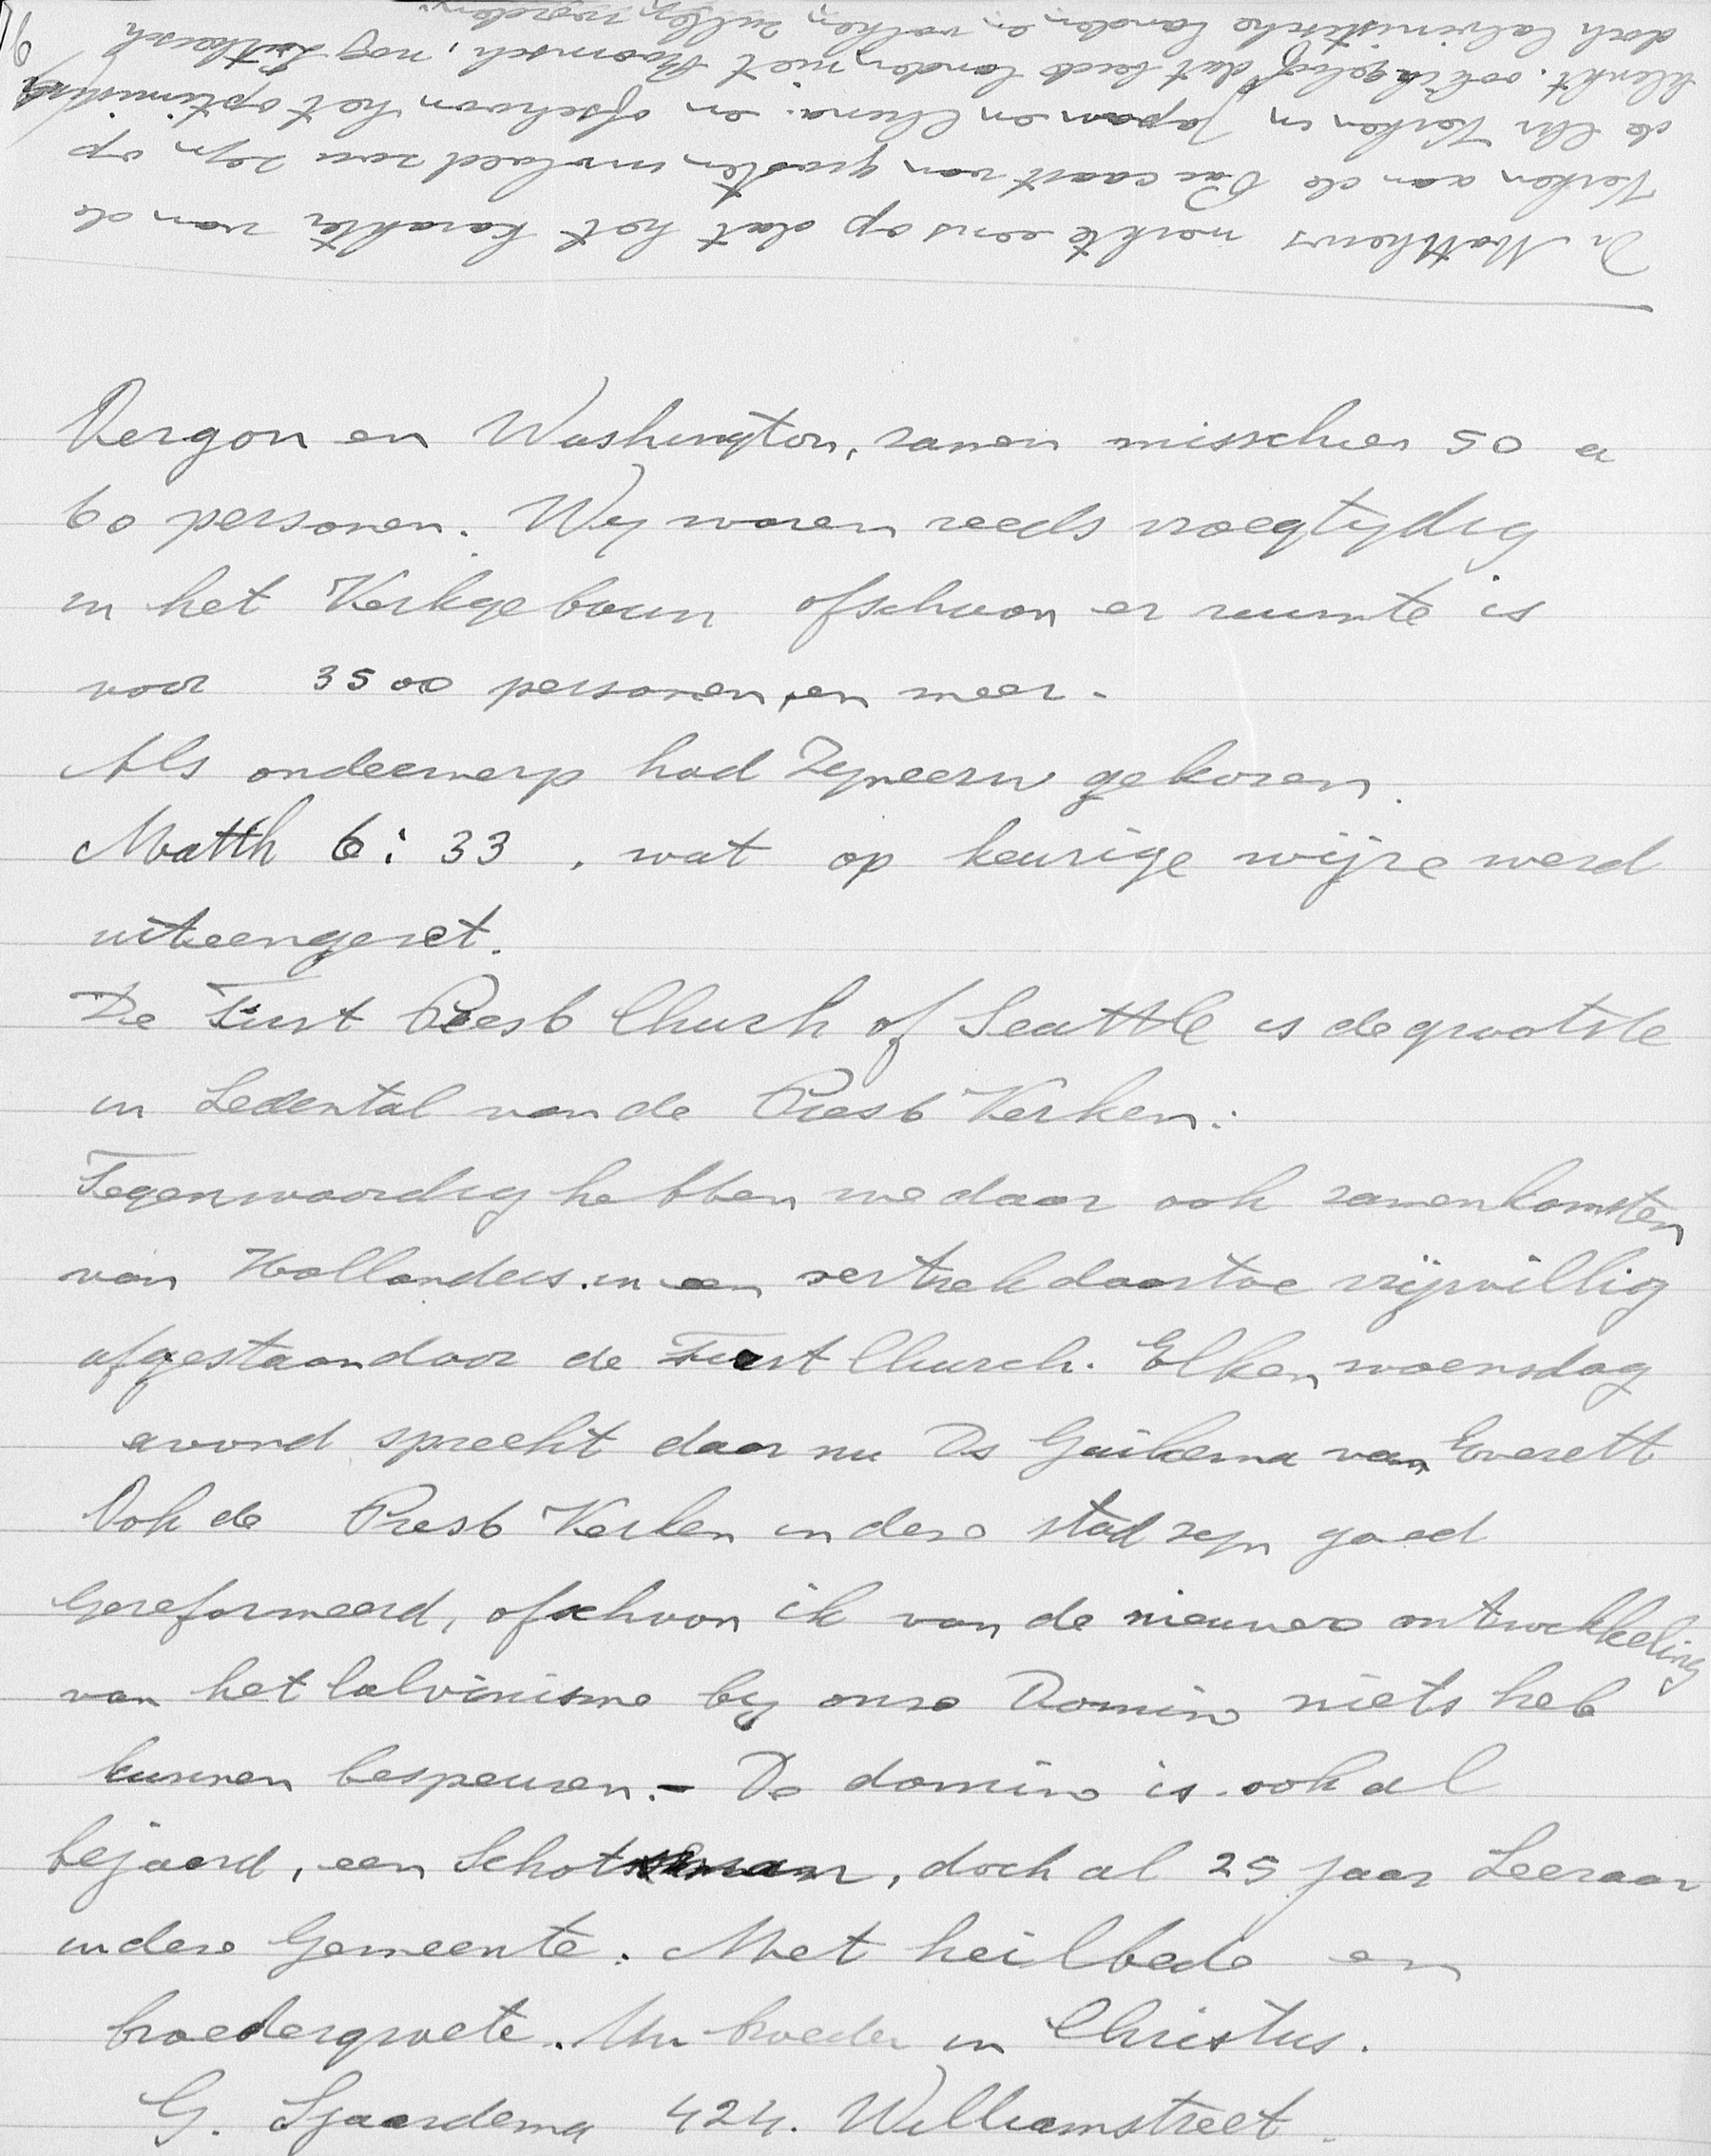 Dr Matthews merkte eens op dat het karakter van de
Kerken aan de Pac caast van grooten invloed zou zyn op
de Chr Kerken in Japan en China: en ofschoon het optimistisch
klinkt. ook ik geloof dat beide landen niet Roomsch, nog Luthersch
doch Calvinistische landen en volken zullen worden.
Oregon en Washington, samen misschien 50 a
60 personen. Wy waren reeds vroegtydig
in het Kerkgebouw ofschoon er ruimte is
voor 3500 personen, en meer.
Als onderwerp had Zyneerw gekozen.
Matth 6: 33, wat op keurige wijze werd
uiteengezet.
De First Presb Church of Seattle is de grootste
in Ledental van de Presb Kerken:
Tegenwoordig hebben we daar ook samenkomsten
van Hollanders in een vertrek daartoe vrijwillig
afgestaan door de First Church. Elken woensdag
avond spreekt daar nu Ds Guikema van Everett
Ook de Presb Kerken in deze stad zyn goed
Gereformeerd, ofschoon ik van de nieuwere ontwikkeling
van het Calvinisme by onze Domine niets heb
kunnen bespeuren. - De domine is ook al
bejaard, een Schotsman, doch al 25 jaar Leeraar
in deze Gemeente. Met heilbede en
broedergroete. Uw broeder in Christus.
G. Sjaardema 424. Williamstreet.